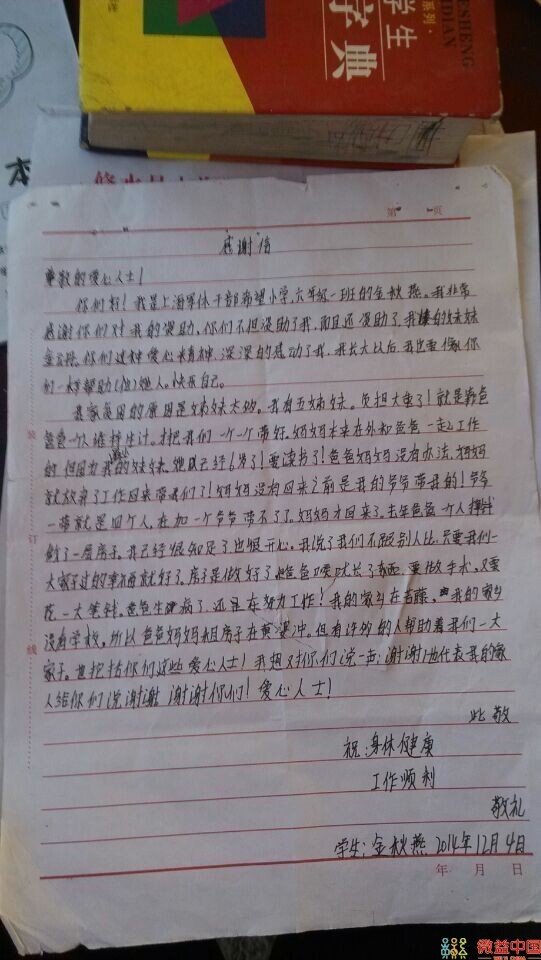 系列·
学生
字典
ESHENG
IDIAN
本
修水县
第 页
感谢信
尊敬的爱心人士！
你们好！我是上海军休干部希望小学，六年级一班的金秋燕。我非常
感谢你们对我的资助，你们不但资助了我，而且还资助了我的妹妹
你们这种爱心精神，深深的感动了我，我长大以后，我也要像你
们一样帮助他人。快乐自己。
我家贫困的原因是姊妹太多。我有五姊妹。负担太重了！就是靠爸
爸一个人维持生计。才把我们一个一个带好。妈妈本来在外和爸爸一起工作
的，但因为我的妹妹，她已经6岁了！要读书了！爸爸妈妈没有办法，妈妈
就放弃了工作回来带我们了！妈妈没有回来之前是我的爷爷带我的！爷爷
一带就是四个人，在加一个爷爷带不了了，妈妈才回来了。去年爸爸一个人挣钱
做了一层房子。我已经很知足了也很开心。我说了我们不跟别人比，只要我们一
大家子过的幸福就好了。房子是做好了，爸爸喉咙长了东西要做手术，又要
花一大笔钱。爸爸生病了，还是在努力工作！我的家乡在 我的家乡
没有学校，所以爸爸妈妈租房子在黄婆冲。但有许多的人帮助着我们一大
家子。也包括你们这些爱心人士！我想对你们说一声：谢谢！也代表我的家
人给你们说谢谢 谢谢你们！爱心人士！
此敬
祝：身体健康
工作顺利
敬礼
学生：金秋燕 2014年12月4日
年 月 日
装
订
线
微益中国